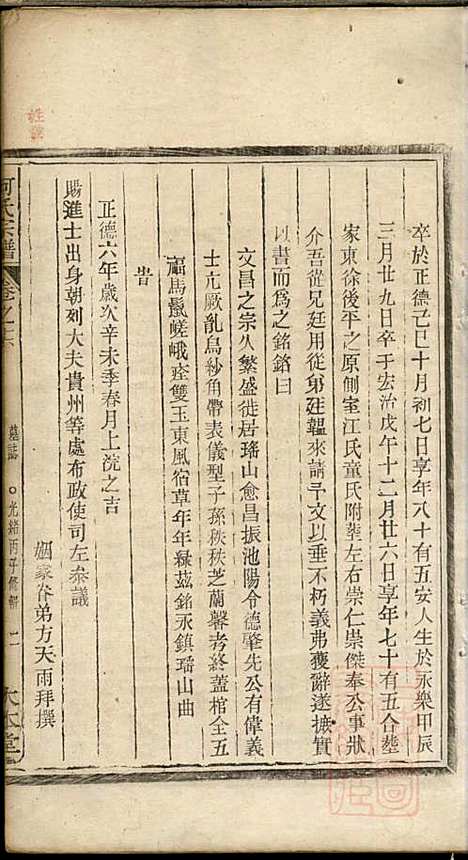 卒於正德己巳十月初七日享年八十有五安人生於永樂甲辰
三月廿九日卒于宏治戊午十二月廿六日享年七十有五合塟
家東徐後平之原側室江氏童氏附塟左右崇仁崇傑奉公事狀
介吾從兄廷用從弟廷韞來請予文以垂不朽義弗獲辭遂摭實
以書而爲之銘銘曰
文昌之宗乆繁盛徙居瑤山愈昌振池陽令德肇先公有偉義
士亢厥亂烏紗角帶表儀型子孫秩秩芝蘭馨考終蓋棺全五
福馬鬛嵯峨瘞雙玉東風宿草年年緑茲銘永鎮瑤山曲
旹
正德六年歲次辛未季春月上浣之吉
賜進士出身朝列大夫貴州等處布政使司左叅議
姻家眷弟方天雨拜撰
何氏宗譜
卷之六
墓誌
光緒丙子修輯
二
大本堂
姓